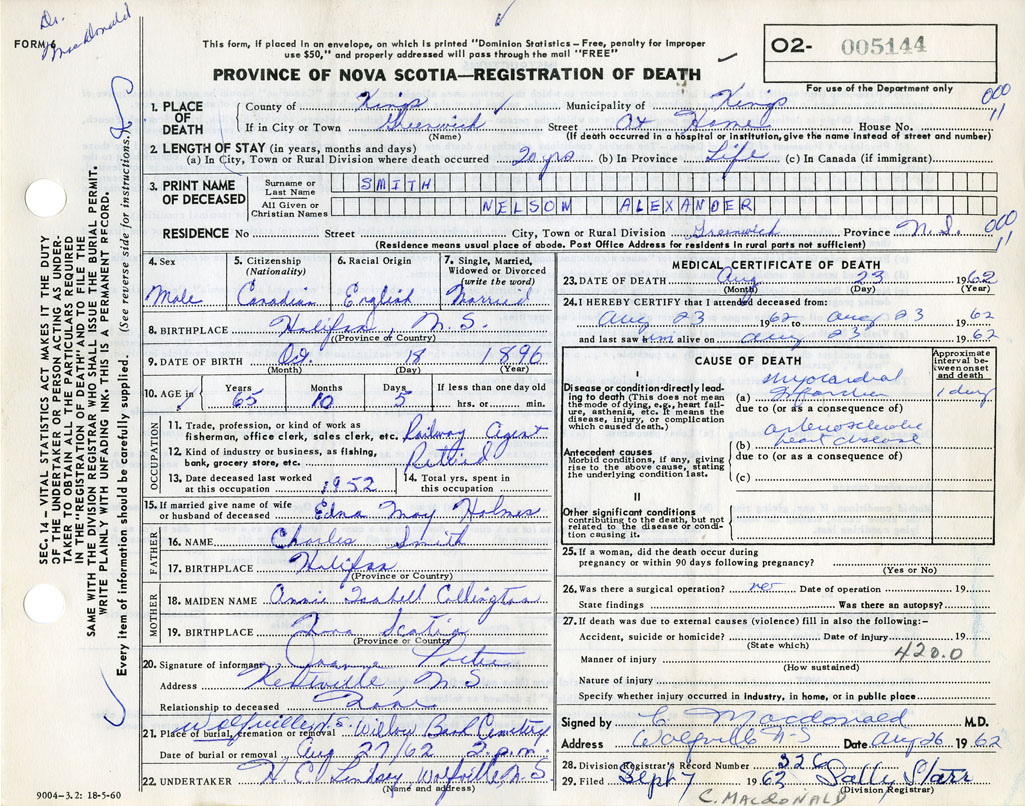 Dr. MacDonald
FORM 6
This form, if placed in an envelope, on which is printed "Dominion Statistics – Free, penalty for improper
use $50," and properly addressed will pass through the mail "FREE"
PROVINCE OF NOVA SCOTIA—REGISTRATION OF DEATH
O2- 005144
For use of the Department only
1. PLACE OF DEATH
County of Kings Municipality of Kings
If in City or Town Greenwich Street At Home House No.
(Name) (If death occurred in a hospital or institution, give the name instead of street and number)
000
11
2. LENGTH OF STAY (in years, months and days)
(a) In City, Town or Rural Division where death occurred 20 yrs (b) In Province Life (c) In Canada (if immigrant)
3. PRINT NAME OF DECEASED
Surname or Last Name SMITH
All Given or Christian Names NELSON ALEXANDER
RESIDENCE No Street City, Town or Rural Division Greenwich Province N.S.
(Residence means usual place of abode. Post Office Address for residents in rural parts not sufficient)
000
11
4. Sex
Male
5. Citizenship (Nationality)
Canadian
6. Racial Origin
English
7. Single, Married, Widowed or Divorced (write the word)
Married
8. BIRTHPLACE Halifax, N.S.
(Province or Country)
9. DATE OF BIRTH Oct. 18 1896
(Month) (Day) (Year)
10. AGE in
Years 65
Months 10
Days 5
If less than one day old
hrs. or min.
OCCUPATION
11. Trade, profession, or kind of work as
fisherman, office clerk, sales clerk, etc. Railway Agent
12. Kind of industry or business, as fishing,
bank, grocery store, etc. Retired
13. Date deceased last worked
at this occupation 1952
14. Total yrs. spent in
this occupation
15. If married give name of wife
or husband of deceased Edna May Holmes
FATHER
16. NAME Charles Smith
17. BIRTHPLACE Halifax
(Province or Country)
MOTHER
18. MAIDEN NAME Annie Isabell Collington
19. BIRTHPLACE Nova Scotia
(Province or Country)
20. Signature of informant Joanne Porter
Address Kentville, N.S
Relationship to deceased None
Wolfville N.S.
21. Place of burial, cremation or removal Willow Bank Cemetery
Date of burial or removal Aug 27/62 2 p.m.
22. UNDERTAKER H. C. Lindsay Wolfville N.S.
(Name and address)
9004-3.2: 18-5-60
MEDICAL CERTIFICATE OF DEATH
23. DATE OF DEATH Aug 23 1962
(Month) (Day) (Year)
24. I HEREBY CERTIFY that I attended deceased from:
Aug 23 1962 to Aug 23 1962
and last saw him alive on Aug 23 1962
CAUSE OF DEATH
Approximate interval between onset and death
I
Disease or condition directly leading to death (This does not mean the mode of dying, e.g., heart failure, asthenia, etc. It means the disease, injury, or complication which caused death.)
(a) Myocardial Infarction 1 day
due to (or as a consequence of)
Antecedent causes
Morbid conditions, if any, giving rise to the above cause, stating the underlying condition last.
(b) arteriosclerotic heart disease
due to (or as a consequence of)
(c)
II
Other significant conditions
contributing to the death, but not related to the disease or condition causing it.
25. If a woman, did the death occur during
pregnancy or within 90 days following pregnancy?
(Yes or No)
26. Was there a surgical operation? no Date of operation 19
State findings Was there an autopsy?
27. If death was due to external causes (violence) fill in also the following:-
Accident, suicide or homicide? Date of injury 19
(State which)
420.0
Manner of injury
(How sustained)
Nature of injury
Specify whether injury occurred in industry, in home, or in public place
Signed by C. Macdonald M.D.
Address Wolfville N-S Date Aug 26 1962
28. Division Registrar's Record Number 326
29. Filed Sept 7 1962 Sally Starr
(Division Registrar)
C. MACDONALD
SEC. 14 - VITAL STATISTICS ACT MAKES IT THE DUTY
OF THE UNDERTAKER OR PERSON ACTING AS UNDER-
TAKER TO OBTAIN ALL THE PARTICULARS REQUIRED
IN THE "REGISTRATION OF DEATH" AND TO FILE THE
SAME WITH THE DIVISION REGISTRAR WHO SHALL ISSUE THE BURIAL PERMIT.
WRITE PLAINLY WITH UNFADING INK. THIS IS A PERMANENT RECORD.
Every item of information should be carefully supplied. (See reverse side for instructions.)